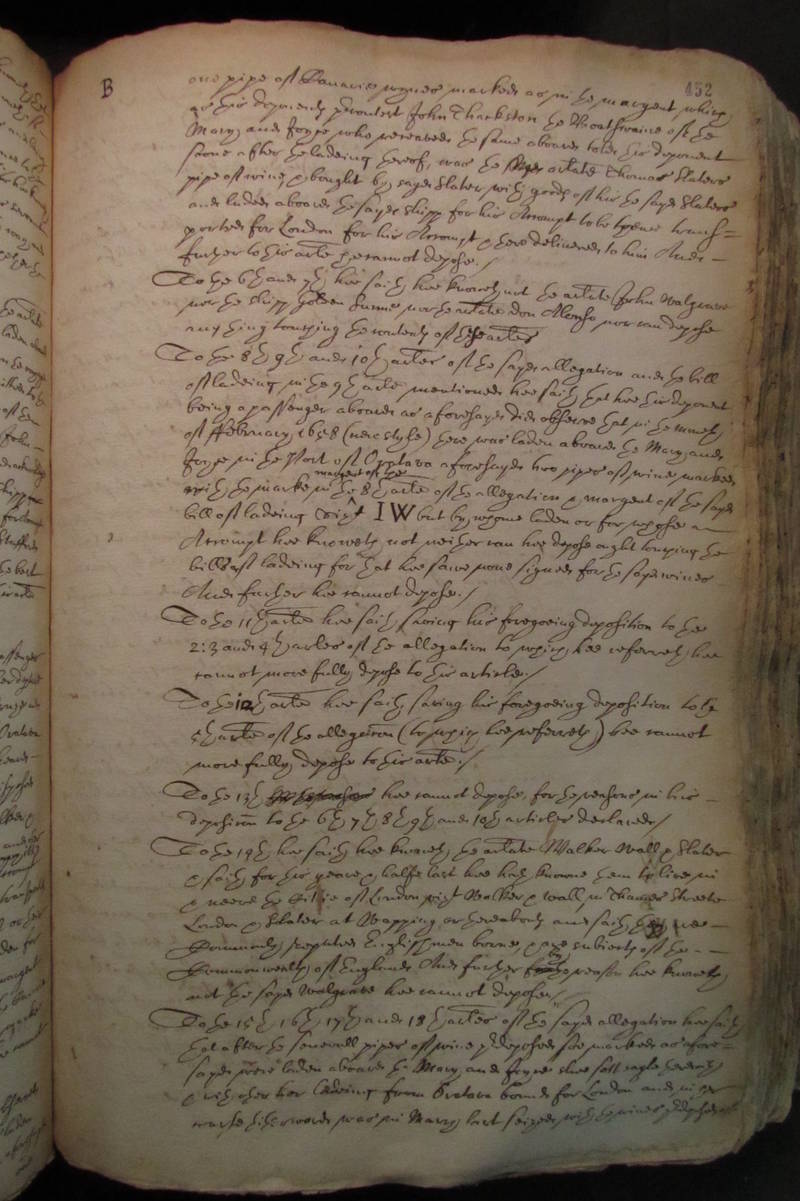 B
452
one pipe of Canarie wynes marked as in the margent which
as this deponents contest John Thackston the Boatswaine of the
Mary and Joyce who received the same aboard told this deponent
soone after the ladeing thereof, was the sayd arlate Thomas Slaters
pipe of wine, & bought by sayd Slater with goods of his the sayd Slaters
and laded aboard the sayd shipp for his Accompt to be trans=
ported for London for his Accompt & there delivered to him And
further to this arlate he cannot depose./
To the 6th and 7th hee saith hee knoweth not the arlate John Walgrave
nor the shipp Golden Sunne nor the arlate don Alonso nor can depose
any thing touching the contents of these articles
To the 8th 9th and 10th articles of the sayd allegation and the bill
of ladeing in the 9th arlate mentioned hee saith that hee this deponent
being a passenger aboard as aforesayd did observe that in the moneth
of ffebruary 1658 (new style) there was laden aboard the Mary and
Joyce in the Port of Oratava aforesayd two pipes of wine marked
margent of the
with the marke in the 8th arlate of the allegation & margent of the sayd
bill of ladeing vizt IW but by whome laden or for whose
Accompt hee knoweth not neither can hee depose ought touching the
bill of ladeing for that hee sawe none signed for the sayd wines
And further hee cannot depose./
To the 11th arlate hee saith saving his foregoeing deposition to the
2: 3 and 4th arles of the allegation to which hee referreth hee
cannot more fully depose to this article./
To the 12th arlate hee saith saving his foregoeing deposition to the
5th arlate of the allegation (to which hee referreth) hee cannot
more fully depose to this arlate./
To the 13th hee cannot depose, for the reasons in his
deposition to the 6th 7th 8th 9th and 10th articles declared/
To the 14th hee saith hee knoweth the arlate Walker Wall & Slater
& saith for this yeare & halfe last hee hath knowne them to live in
& neere the Citie of London vizt Walker & Wall in Thames Streete
London & Slater at Wapping or thereabouts and saith they are
Commonly reputed Englishmen borne, & are subiects of the
Commonwealth of England And further by the reason hee knoweth
not the sayd Walgrave hee cannot depose/
To the 15th 16th 17th and 18th articles of the sayd allegation hee saith
that after the severall pipes of wine predeposed soe marked as afore=
sayd were laden aboard the Mary and Joyce shee sett sayle therewith
& with other her ladeing from Oratava bound for London and in her
course thitherwards was in March last seized with the wines predeposed